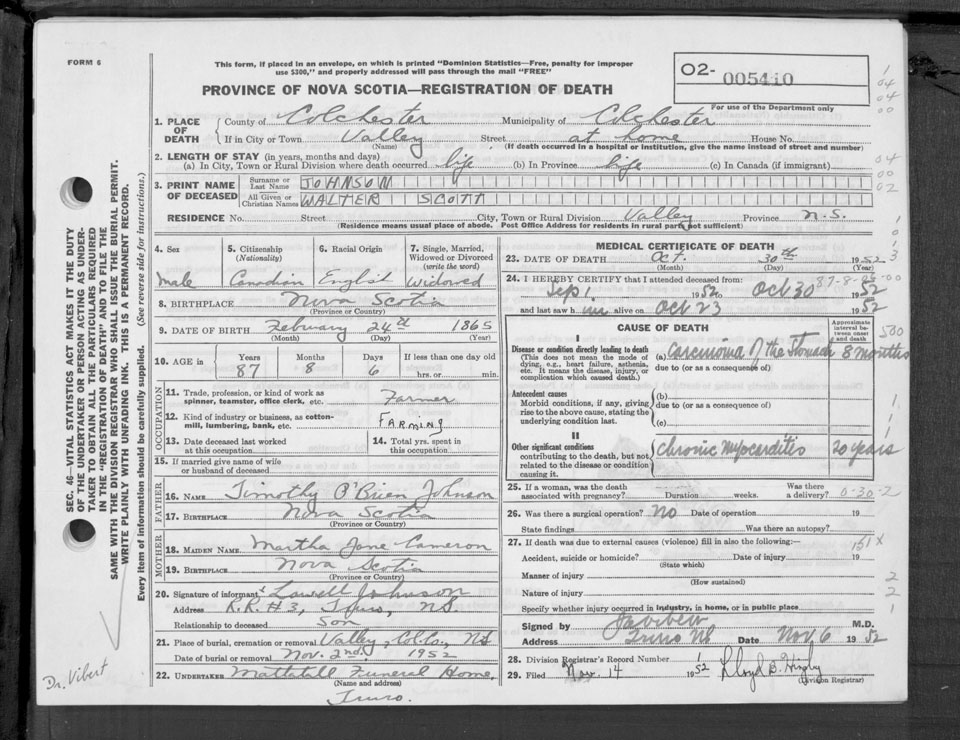 FORM 6
This form, if placed in an envelope, on which is printed "Dominion Statistics—Free, penalty for improper
use $300," and properly addressed will pass through the mail "FREE"
02- 005410
For use of the Department only
PROVINCE OF NOVA SCOTIA—REGISTRATION OF DEATH
1. PLACE OF DEATH
County of Colchester Municipality of Colchester
If in City or Town Valley Street at home House No.
(Name) (If death occurred in a hospital or institution, give the name instead of street and number)
2. LENGTH OF STAY (in years, months and days)
(a) In City, Town or Rural Division where death occurred life (b) In Province life (c) In Canada (if immigrant)
3. PRINT NAME OF DECEASED
Surname or Last Name JOHNSON
All Given or Christian Names WALTER SCOTT
RESIDENCE No. Street City, Town or Rural Division Valley Province N.S.
(Residence means usual place of abode. Post Office Address for residents in rural parts not sufficient)
4. Sex Male
5. Citizenship (Nationality) Canadian
6. Racial Origin English
7. Single, Married, Widowed or Divorced (write the word) Widowed
8. BIRTHPLACE Nova Scotia
(Province or Country)
9. DATE OF BIRTH February 24th 1865
(Month) (Day) (Year)
10. AGE in Years 87 Months 8 Days 6 If less than one day old hrs. or min.
OCCUPATION
11. Trade, profession, or kind of work as spinner, teamster, office clerk, etc. Farmer
12. Kind of industry or business, as cotton-mill, lumbering, bank, etc. FARMING
13. Date deceased last worked at this occupation
14. Total yrs. spent in this occupation
15. If married give name of wife or husband of deceased
FATHER
16. NAME Timothy O'Brien Johnson
17. BIRTHPLACE Nova Scotia
(Province or Country)
MOTHER
18. MAIDEN NAME Martha Jane Cameron
19. BIRTHPLACE Nova Scotia
(Province or Country)
20. Signature of informant Lowell Johnson
Address R.R. #3, Truro, N.S.
Relationship to deceased Son
21. Place of burial, cremation or removal Valley, Col. Co., NS
Date of burial or removal Nov. 2nd, 1952
22. UNDERTAKER Mattatall Funeral Home,
(Name and address)
Truro.
MEDICAL CERTIFICATE OF DEATH
23. DATE OF DEATH Oct. 30th 1952
(Month) (Day) (Year)
24. I HEREBY CERTIFY that I attended deceased from:
Sep 1 1952 to Oct 30 1952
87-8-06-00
and last saw him alive on Oct 23 1952
CAUSE OF DEATH
Approximate interval between onset and death
I
Disease or condition directly leading to death
(This does not mean the mode of dying, e.g., heart failure, asthenia, etc. It means the disease, injury, or complication which caused death.)
(a) Carcinoma of the Stomach 8 months
due to (or as a consequence of)
Antecedent causes
Morbid conditions, if any, giving rise to the above cause, stating the underlying condition last.
(b)
due to (or as a consequence of)
(c)
II
Other significant conditions contributing to the death, but not related to the disease or condition causing it.
Chronic Myocarditis 20 years
25. If a woman, was the death associated with pregnancy? Duration weeks. Was there a delivery? 0-30-2
26. Was there a surgical operation? NO Date of operation 19
State findings Was there an autopsy?
27. If death was due to external causes (violence) fill in also the following:—
151X
Accident, suicide or homicide? Date of injury 19
(State which)
Manner of injury
(How sustained)
Nature of injury
Specify whether injury occurred in industry, in home, or in public place
Signed by M.D.
Address Truro NS Date Nov 6 1952
28. Division Registrar's Record Number
29. Filed Nov. 14 1952
(Division Registrar)
SEC. 46—VITAL STATISTICS ACT MAKES IT THE DUTY
OF THE UNDERTAKER OR PERSON ACTING AS UNDER-
TAKER TO OBTAIN ALL THE PARTICULARS REQUIRED
IN THE "REGISTRATION OF DEATH" AND TO FILE THE
SAME WITH THE DIVISION REGISTRAR WHO SHALL ISSUE THE BURIAL PERMIT.
WRITE PLAINLY WITH UNFADING INK. THIS IS A PERMANENT RECORD.
Every item of information should be carefully supplied. (See reverse side for instructions.)
Dr. Vibert